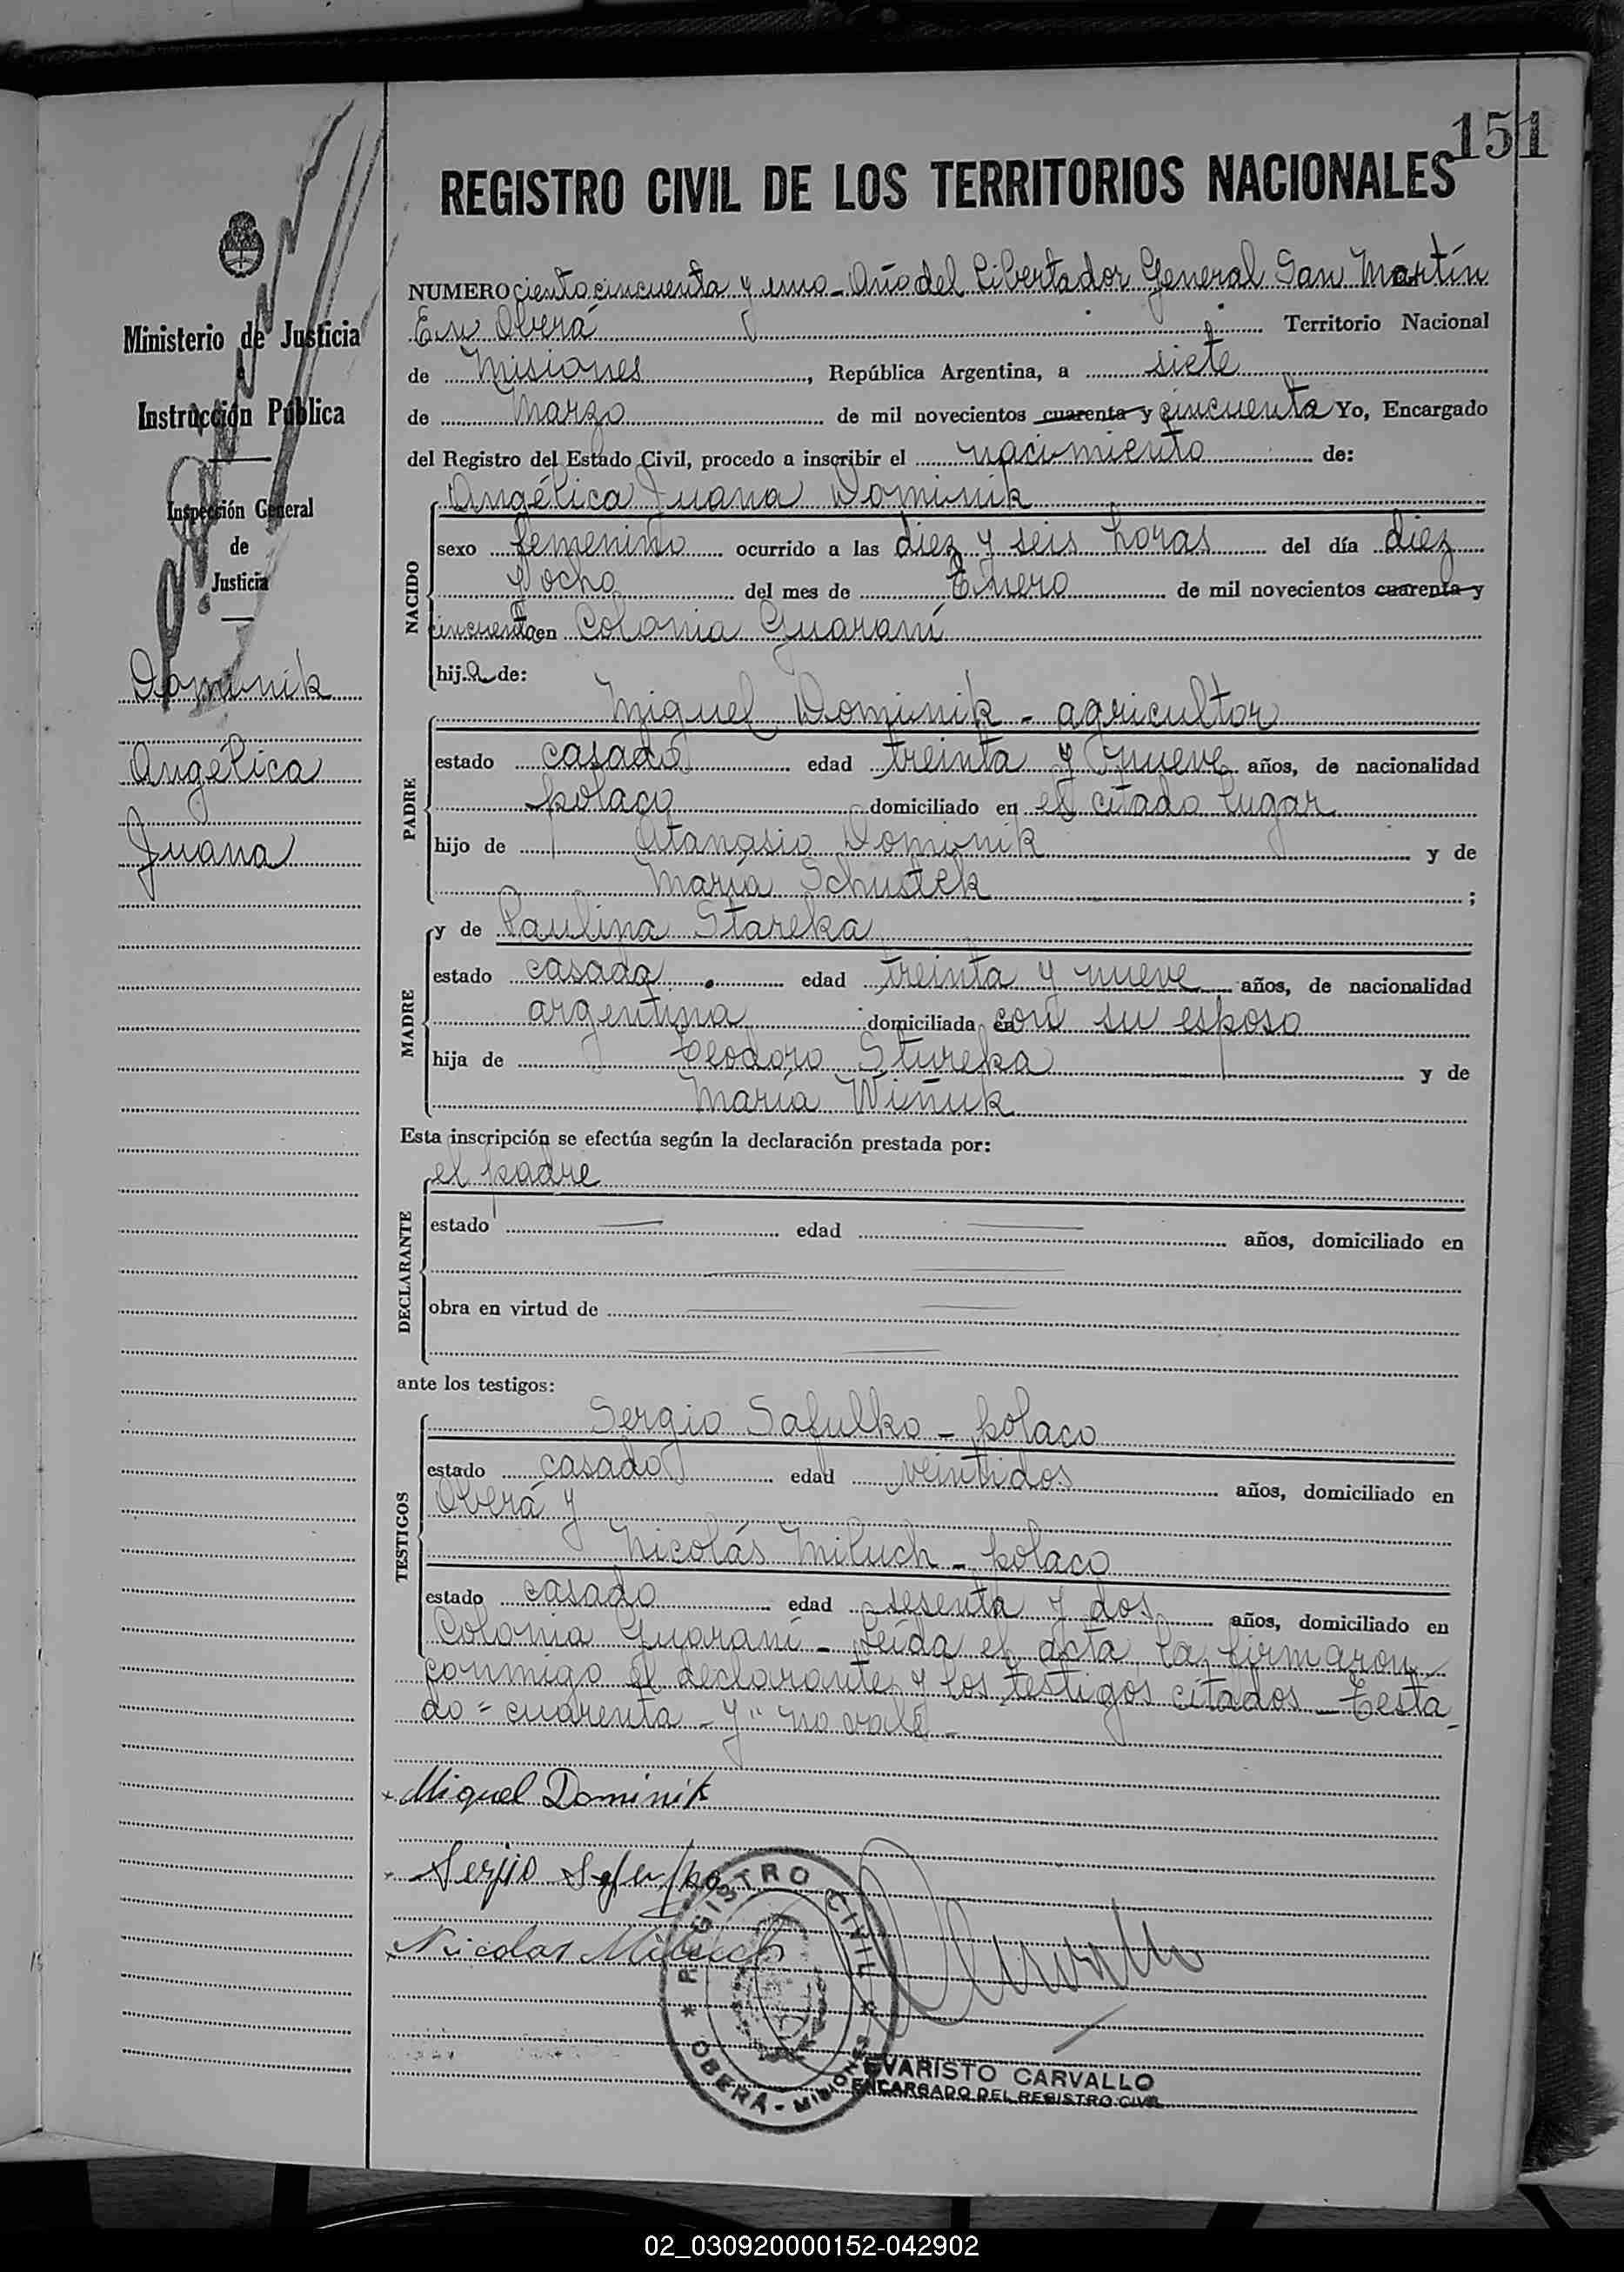 151
REGISTRO CIVIL DE LOS TERRITORIOS NACIONALES
Ministerio de Justicia
e
Instrucción Pública
Inspección General
de
Justicia
Dominik
Angélica
Juana
NUMERO ciento cincuenta y uno - Año del Libertador General San Martín
En Oberá Territorio Nacional
de Misiones, República Argentina, a siete
de Marzo de mil novecientos cuarenta y cincuenta Yo, Encargado
del Registro del Estado Civil, procedo a inscribir el nacimiento de:
NACIDO
Angélica Juana Dominik
sexo femenino ocurrido a las diez y seis horas del día diez
y ocho del mes de Enero de mil novecientos cuarenta y
cincuenta en Colonia Guaraní
hija de:
PADRE
Miguel Dominik - agricultor
estado casado edad treinta y nueve años, de nacionalidad
polaco domiciliado en el citado lugar
hijo de Atanasio Dominik y de
María Schustek ;
MADRE
y de Paulina Stareka
estado casada edad treinta y nueve años, de nacionalidad
argentina domiciliada en con su esposo
hija de Teodoro Stureka y de
María Wiñuk
Esta inscripción se efectúa según la declaración prestada por:
DECLARANTE
el padre
estado edad años, domiciliado en
obra en virtud de
ante los testigos:
TESTIGOS
Sergio Safulko - polaco
estado casado edad veintidos años, domiciliado en
Oberá y
Nicolás Miluch - polaco
estado casado edad sesenta y dos años, domiciliado en
Colonia Guaraní - Leída el acta la firmaron
conmigo el declarante y los testigos citados - Testa-
do = cuarenta - y" no vale -
Miguel Dominik
Serjio Safulko
Nicolas Miluch
REGISTRO CIVIL
* OBERÁ - MISIONES *
EVARISTO CARVALLO
ENCARGADO DEL REGISTRO CIVIL
02_030920000152-042902